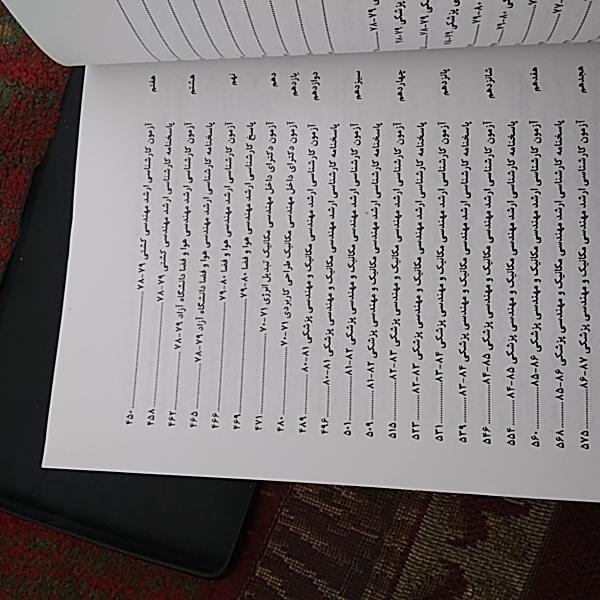 هفتم آزمون کارشناسی ارشد مهندسی کشتی ۷۹-۷۸ ........ ۴۵۰
پاسخنامه کارشناسی ارشد مهندسی کشتی ۷۹-۷۸ ........ ۴۵۸
هشتم آزمون کارشناسی ارشد مهندسی هوا و فضا دانشگاه آزاد ۷۹-۷۸ ........ ۴۶۲
پاسخنامه کارشناسی ارشد مهندسی هوا و فضا دانشگاه آزاد ۷۹-۷۸ ........ ۴۶۵
نهم آزمون کارشناسی ارشد مهندسی هوا و فضا ۸۰-۷۹ ........ ۴۶۶
پاسخ کارشناسی ارشد مهندسی هوا و فضا ۸۰-۷۹ ........ ۴۶۹
دهم آزمون دکترای داخل مهندسی مکانیک تبدیل انرژی ۷۱-۷۰ ........ ۴۷۱
یازدهم آزمون دکترای داخل مهندسی مکانیک طراحی کاربردی ۷۱-۷۰ ........ ۴۸۰
دوازدهم آزمون کارشناسی ارشد مهندسی مکانیک و مهندسی پزشکی ۸۱-۸۰ ........ ۴۸۹
پاسخنامه کارشناسی ارشد مهندسی مکانیک و مهندسی پزشکی ۸۱-۸۰ ........ ۴۹۶
سیزدهم آزمون کارشناسی ارشد مهندسی مکانیک و مهندسی پزشکی ۸۲-۸۱ ........ ۵۰۱
پاسخنامه کارشناسی ارشد مهندسی مکانیک و مهندسی پزشکی ۸۲-۸۱ ........ ۵۰۹
چهاردهم آزمون کارشناسی ارشد مهندسی مکانیک و مهندسی پزشکی ۸۳-۸۲ ........ ۵۱۵
پاسخنامه کارشناسی ارشد مهندسی مکانیک و مهندسی پزشکی ۸۳-۸۲ ........ ۵۲۳
پانزدهم آزمون کارشناسی ارشد مهندسی مکانیک و مهندسی پزشکی ۸۴-۸۳ ........ ۵۳۱
پاسخنامه کارشناسی ارشد مهندسی مکانیک و مهندسی پزشکی ۸۴-۸۳ ........ ۵۳۹
شانزدهم آزمون کارشناسی ارشد مهندسی مکانیک و مهندسی پزشکی ۸۵-۸۴ ........ ۵۴۶
پاسخنامه کارشناسی ارشد مهندسی مکانیک و مهندسی پزشکی ۸۵-۸۴ ........ ۵۵۴
هفدهم آزمون کارشناسی ارشد مهندسی مکانیک و مهندسی پزشکی ۸۶-۸۵ ........ ۵۶۰
پاسخنامه کارشناسی ارشد مهندسی مکانیک و مهندسی پزشکی ۸۶-۸۵ ........ ۵۶۸
هجدهم آزمون کارشناسی ارشد مهندسی مکانیک و مهندسی پزشکی ۸۷-۸۶ ........ ۵۷۵